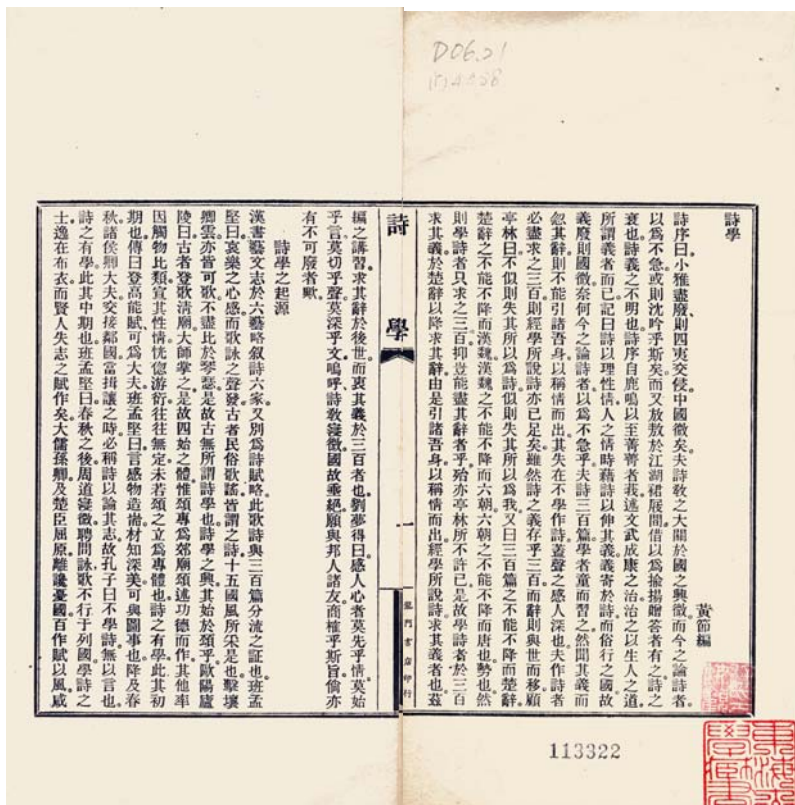 D06.21
詩學
黃節編
詩序曰小雅盡廢則四夷交侵中國微矣夫詩敎之大關於國之興微而今之論詩者
以為不急或則沈吟乎斯矣而又放敖於江湖裙屐間借以為揄揚贈答者有之詩之
衰也詩義之不明也詩序自鹿鳴以至菁菁者莪述文武成康之治治之以生人之道
所謂義者而已記曰詩以理性情人之情時藉詩以伸其義義寄於詩而俗行之國故
義廢則國微奈何今之論詩者以為不急乎夫詩三百篇學者童而習之然聞其義而
忽其辭則不能引諸吾身以稱情而出其失在不學作詩蓋聲之感人深也夫作詩者
必盡求之三百則經學所說詩亦已足矣雖然詩之義存乎三百而辭則與世而移顧
亭林曰不似則失其所以為詩似則失其所以為我又曰三百篇之不能不降而楚辭
楚辭之不能不降而漢魏漢魏之不能不降而六朝六朝之不能不降而唐也勢也然
則學詩者只求之三百抑豈能盡其辭者乎殆亦亭林所不許已是故學詩者於三百
求其義於楚辭以降求其辭由是引諸吾身以稱情而出經學所說詩求其義者也茲
詩學
一
龍門書店印行
編之講習求其辭於後世而衷其義於三百者也劉夢得曰感人心者莫先乎情莫始
乎言莫切乎聲莫深乎文嗚呼詩敎寖微國故垂絕願與邦人諸友商榷乎斯旨倘亦
有不可廢者歟
詩學之起源
漢書藝文志於六藝略叙詩六家又別為詩賦略此歌詩與三百篇分流之証也班孟
堅曰哀樂之心感而歌詠之聲發古者民俗歌謠皆謂之詩十五國風所采是也擊壤
卿雲亦皆可歌不盡比於琴瑟是故古無所謂詩學也詩學之興其始於頌乎歐陽廬
陵曰古者登歌淸廟大師掌之是故四始之體惟頌專為郊廟頌述功德而作其他率
因觸物比類宣其性情恍惚游衍往往無定未若頌之立為專體也詩之有學此其初
期也傳曰登高能賦可為大夫班孟堅曰言感物造耑材知深美可與圖事也降及春
秋諸侯卿大夫交接鄰國當揖讓之時必稱詩以諭其志故孔子曰不學詩無以言也
詩之有學此其中期也班孟堅曰春秋之後周道寖微聘問詠歌不行于列國學詩之
士逸在布衣而賢人失志之賦作矣大儒孫卿及楚臣屈原離讒憂國百作賦以風咸
113322